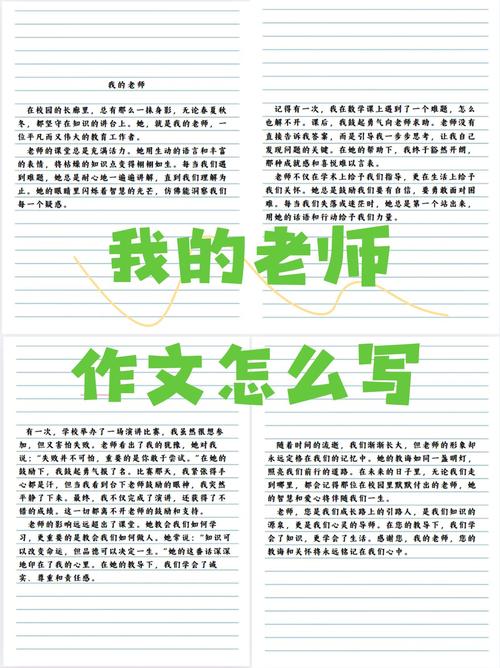 我的老师
在校园的长廊里，总有那么一抹身影，无论春夏秋
冬，都坚守在知识的讲台上。她，就是我的老师，一
位平凡而又伟大的教育工作者。
老师的课堂总是充满活力。她用生动的语言和丰富
的表情，将枯燥的知识点变得栩栩如生。每当我们遇
到难题，她总是耐心地一遍遍讲解，直到我们理解为
止。她的眼睛里闪烁着智慧的光芒，仿佛能洞察我们
每一个疑惑。
记得有一次，我在数学课上遇到了一个难题，怎么
也解不开。课后，我鼓起勇气向老师求助。老师没有
直接告诉我答案，而是引导我一步步思考，让我自己
发现问题的关键。在她的帮助下，我终于豁然开朗，
那种成就感和喜悦难以言表。
老师不仅在学术上给予我们指导，更在生活上给予
我们关怀。她总是鼓励我们要有自信，要勇敢面对困
难。每当我们失落或迷茫时，她总是第一个站出来，
用她的话语和行动给予我们力量。
我的老师
作文怎么写
有一次，学校举办了一场演讲比赛，我虽然很想参
加，但又害怕失败。老师看出了我的犹豫，她对我
说：“失败并不可怕，重要的是你敢于尝试。”在她
的鼓励下，我鼓起勇气报了名。比赛那天，我紧张得手
心都是汗，但当我看到台下老师鼓励的眼神，我突然
平静了下来。最终，我不仅完成了演讲，还获得了不
错的成绩。这一切都离不开老师的鼓励和支持。
老师的影响远远超出了课堂。她教会我们如何学
习，更重要的是教会我们如何做人。她常说：“知识可
以改变命运，但品德可以决定一生。”她的这番话深深
地印在了我的心里。在她的教导下，我们学会了诚
实、尊重和责任感。
随着时间的流逝，我们渐渐长大，但老师的形象却
永远定格在我们的记忆中。她的教诲如同一盏明灯，
照亮我们前行的道路。在未来的日子里，无论我们走
到哪里，都会记得那位在校园里默默付出的老师，她
的智慧和爱心将伴随我们一生。
老师，您是我们成长路上的引路人，是我们知识的
源泉，更是我们心灵的导师。在您的教导下，我们学
会了知识，更学会了生活。感谢您，我的老师，您的
教诲和关怀将永远铭记在我们心中。